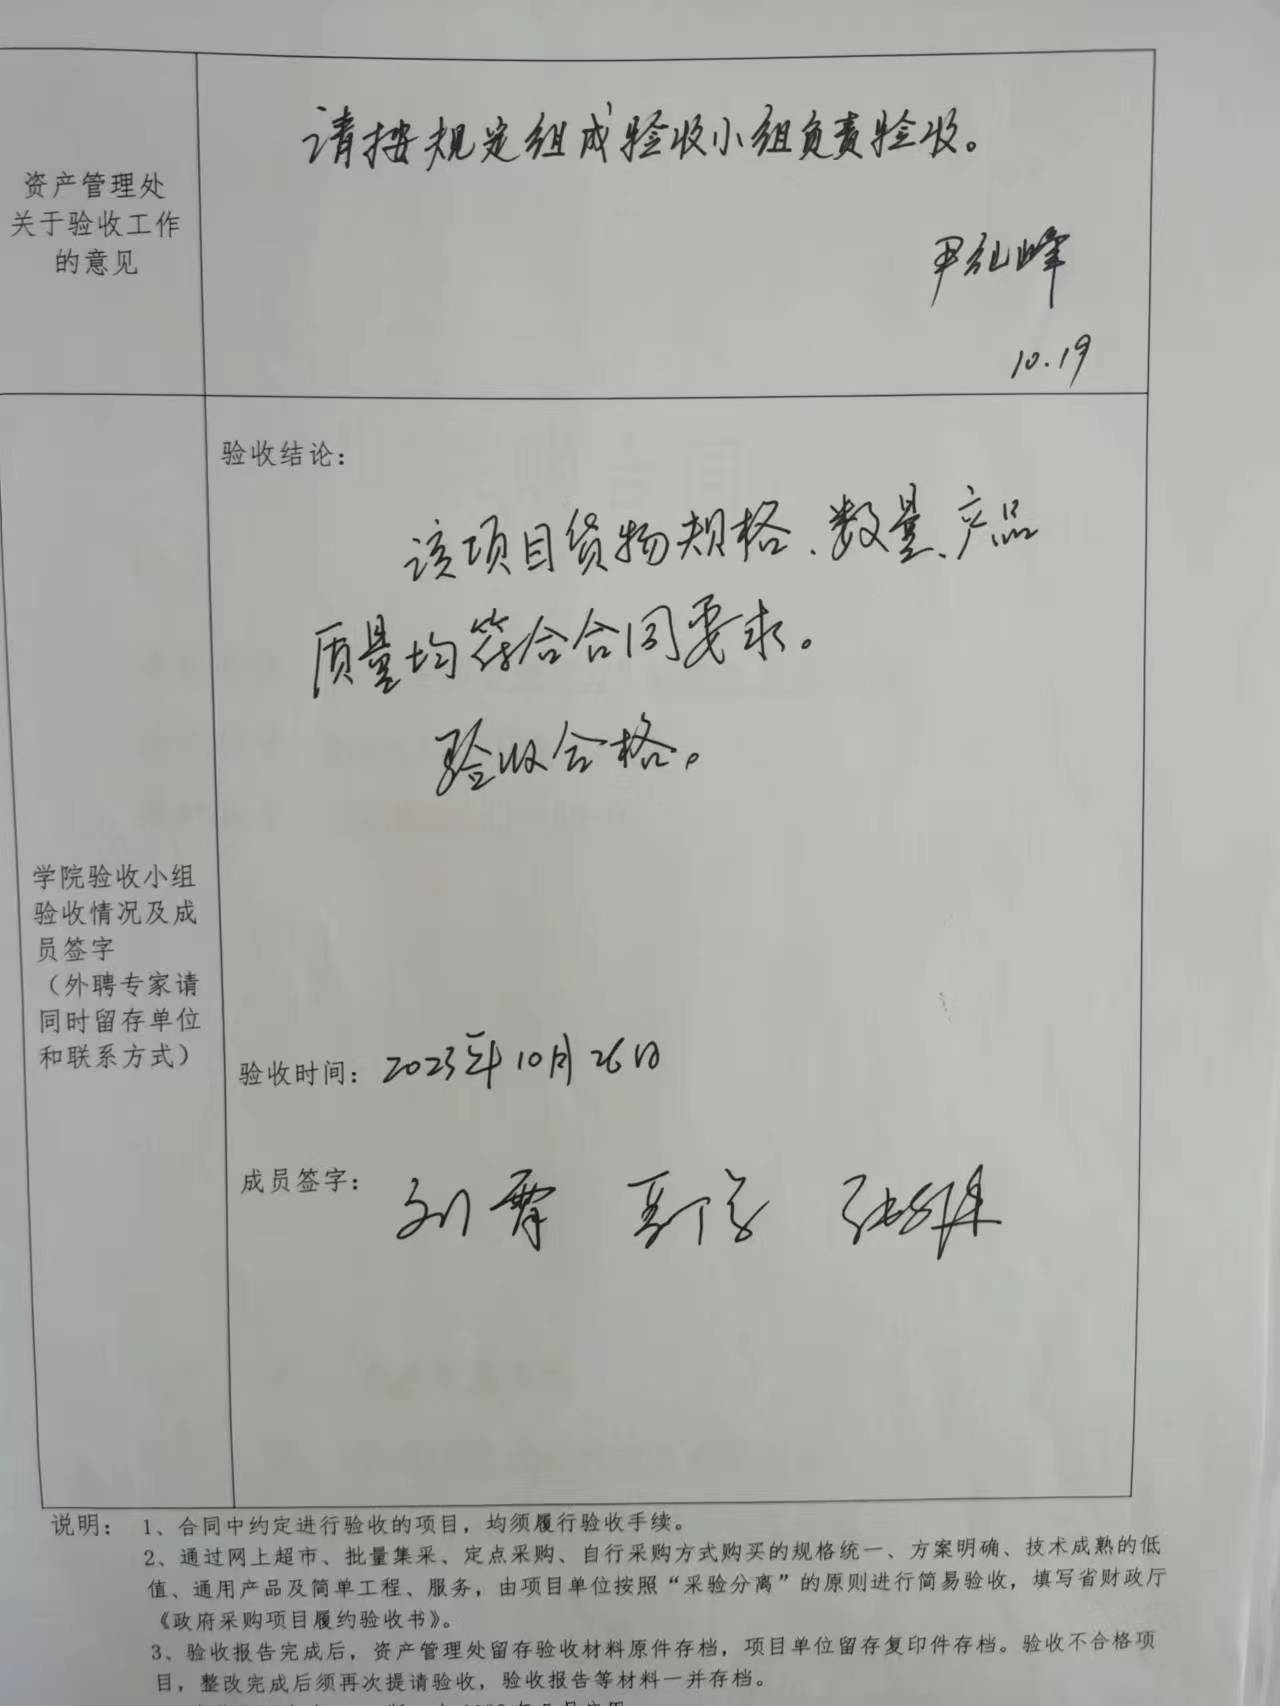 资产管理处
关于验收工作
的意见
请按规定组成验收小组负责验收。
10.19
学院验收小组
验收情况及成
员签字
（外聘专家请
同时留存单位
和联系方式）
验收结论：
该项目货物规格、数量、产品
质量均符合合同要求。
验收合格。
验收时间：2023年10月26日
成员签字：
说明： 1、合同中约定进行验收的项目，均须履行验收手续。
2、通过网上超市、批量集采、定点采购、自行采购方式购买的规格统一、方案明确、技术成熟的低
值、通用产品及简单工程、服务，由项目单位按照“采验分离”的原则进行简易验收，填写省财政厅
《政府采购项目履约验收书》。
3、验收报告完成后，资产管理处留存验收材料原件存档，项目单位留存复印件存档。验收不合格项
目，整改完成后须再次提请验收，验收报告等材料一并存档。